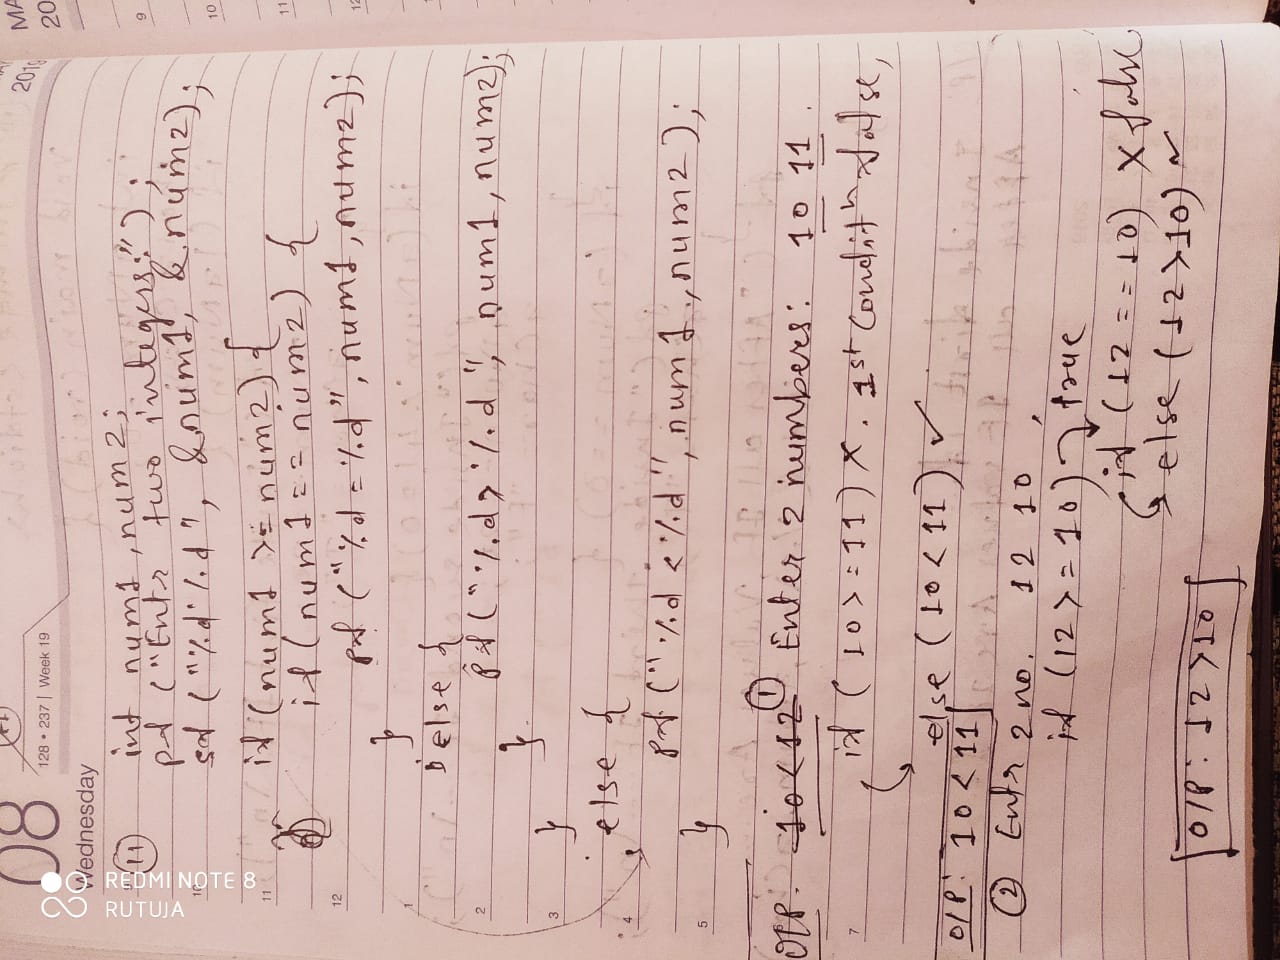 08
Wednesday
128 • 237 | Week 19
2019
(11) int num1, num2;
pf ("Entr two integers:");
sf ("%d %d", &num1, &num2);
if (num1 >= num2) {
if (num1 == num2) {
pf ("%d = %d", num1, num2);
}
else {
pf ("%d > %d", num1, num2);
}
}
else {
pf ("%d < %d", num1, num2);
}
O/P: 10 < 12 (1) Enter 2 numbers: 10 11.
if (10 >= 11) X. 1st condith false,
else (10 < 11) ✓
O/P: 10 < 11
(2) Entr 2 no. 12 10,
if (12 >= 10) → true
if (12 == 10) X false
else (12 > 10) ✓
O/P: 12 > 10
9
10
11
12
10
11
12
1
2
3
4
5
7
MA
20
REDMI NOTE 8
RUTUJA